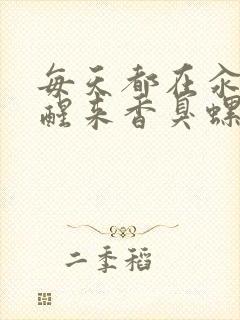 每天都在汆
醒来香臭螺
二季稻